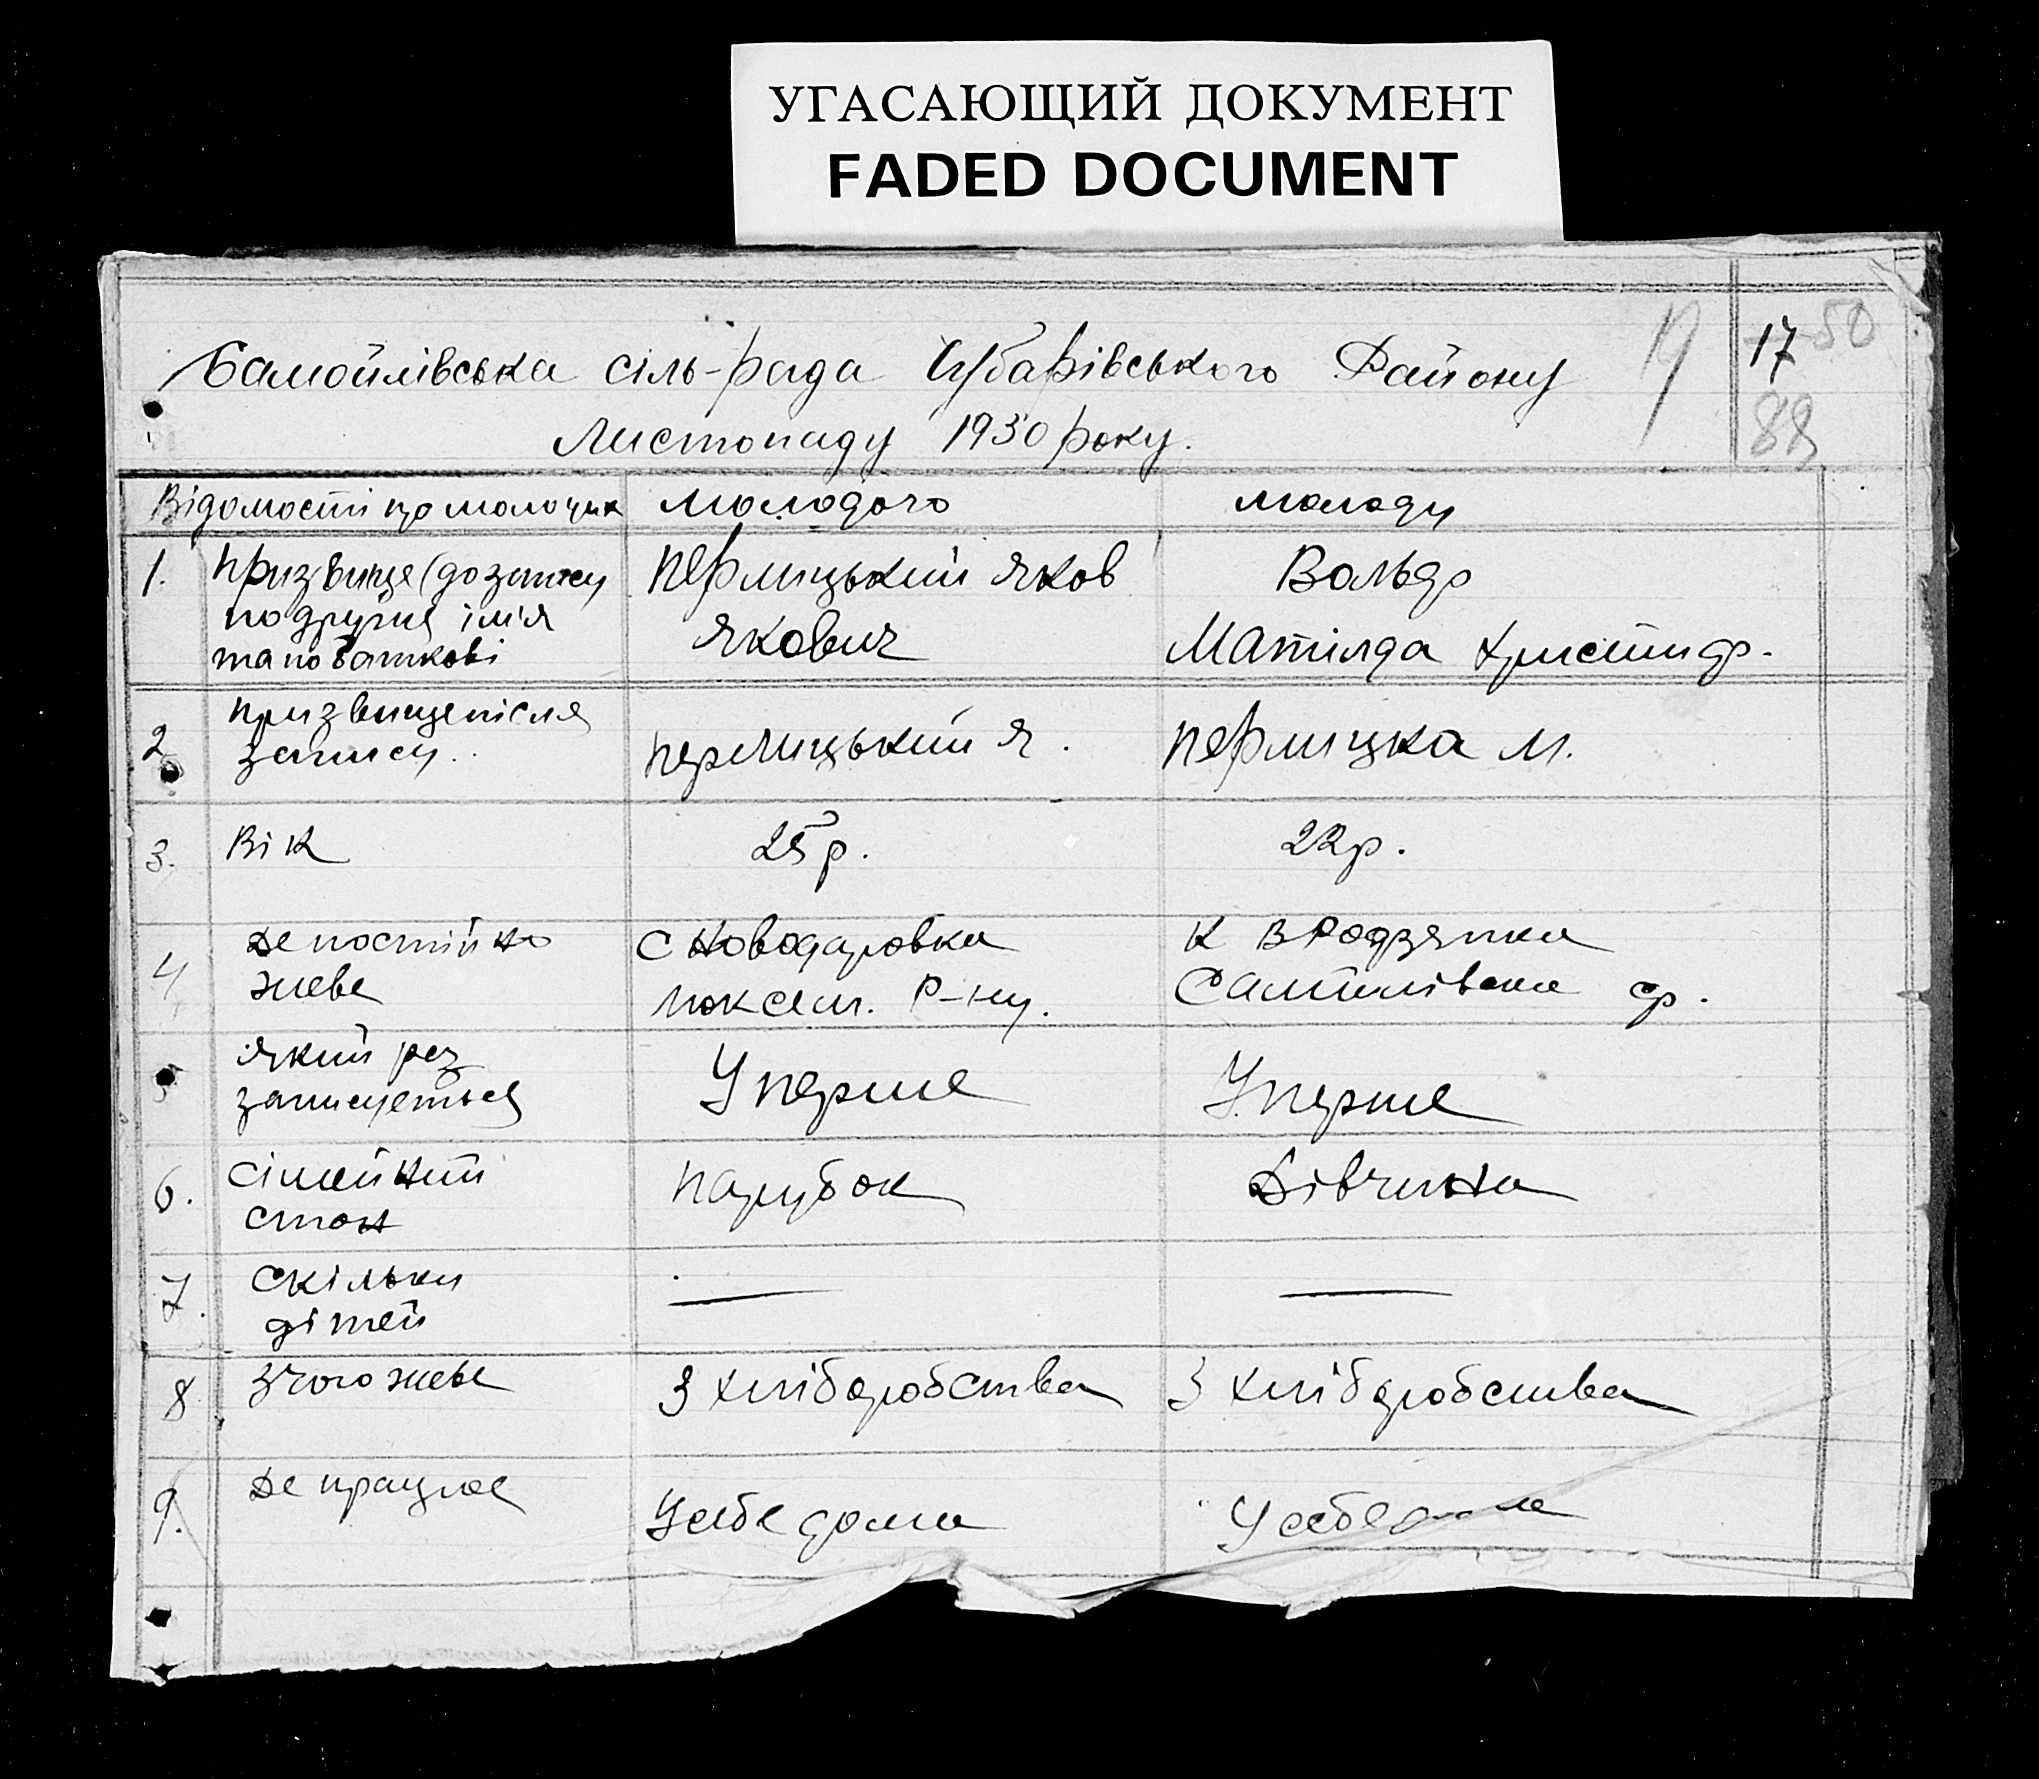 УГАСАЮЩИЙ ДОКУМЕНТ
FADED DOCUMENT
Самойлівська сіль-рада Чубарівського Району
19
17
50
88
Листопаду 1930 року.
Відомості про молодих
молодого
молоду
1.
призвище (до запису
подружя імія
та по батькові
перлицький яков
якович
Вольдо
Матілда Христиф.
2
призвище після
запису.
перлицький Я.
перлицка М.
3.
Вік
25 р.
22 р.
4
Де постійно
живе
С Новодаровка
Люксем. Р-ну.
К В Родзянка
Самойлівска ср.
5
Який раз
записуеться
Уперше
Уперше
6.
Сімейний
стан
парубок
Дівчина
7.
Скільки
дітей
8
З чого живе
З хліборобства
З хліборобства
9.
Де працює
У себе дома
У себе дома